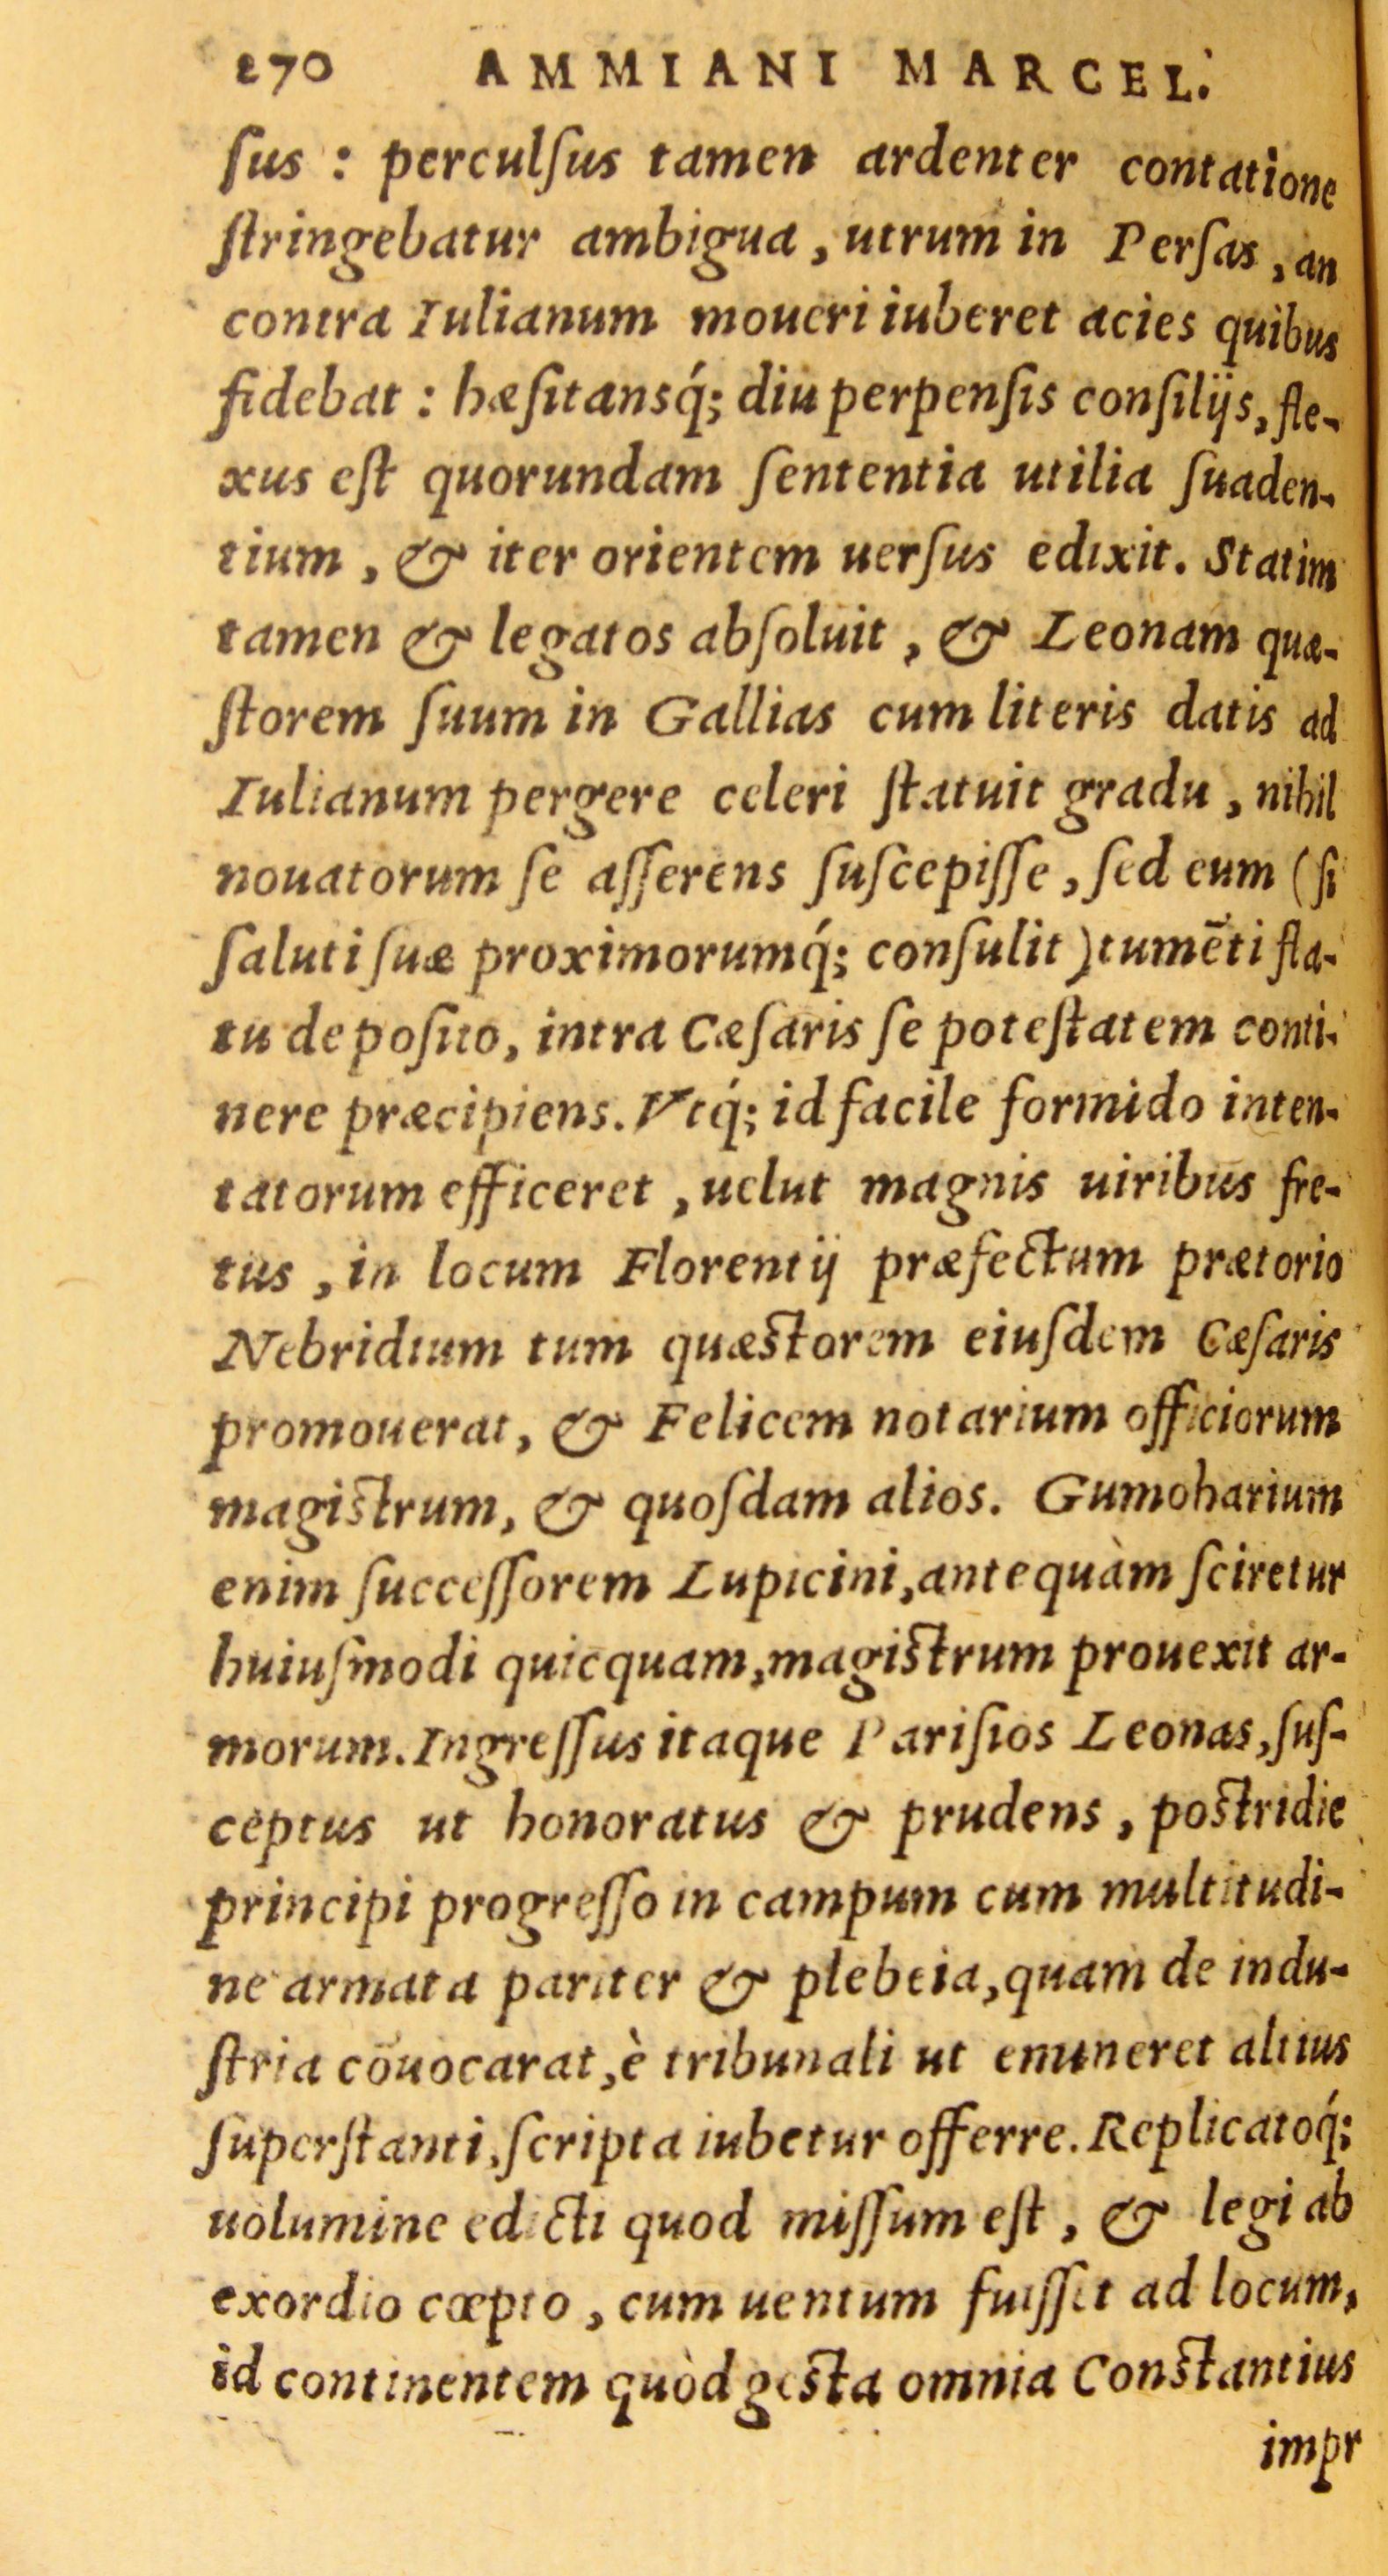 270 AMMIANI MARCEL.
ſus : perculſus tamen ardenter contatione
ſtringebatur ambigua, utrum in Perſas, an
contra Iulianum moueri iuberet acies quibus
fidebat : hæſitansq́; diu perpenſis conſilijs, fle-
xus eſt quorundam ſententia utilia ſuaden-
tium, & iter orientem uerſus edixit. Statim
tamen & legatos abſoluit, & Leonam quæ-
ſtorem ſuum in Gallias cum literis datis ad
Iulianum pergere celeri ſtatuit gradu, nihil
nouatorum ſe aſſerens ſuſcepiſſe, ſed eum (ſi
ſaluti ſuæ proximorumq́; conſulit) tumēti fla-
tu depoſito, intra Cæſaris ſe poteſtatem conti-
nere præcipiens. Vtq́; id facile formido inten-
tatorum efficeret, uelut magnis uiribus fre-
tus, in locum Florentij præfectum prætorio
Nebridium tum quæstorem eiuſdem Cæſaris
promouerat, & Felicem notarium officiorum
magistrum, & quoſdam alios. Gumoharium
enim ſucceſſorem Lupicini, antequàm ſciretur
huiuſmodi quicquam, magistrum prouexit ar-
morum. Ingreſſus itaque Pariſios Leonas, ſuſ-
ceptus ut honoratus & prudens, postridie
principi progreſſo in campum cum multitudi-
ne armata pariter & plebeia, quam de indu-
ſtria cōuocarat, è tribunali ut emineret altius
ſuperſtanti, ſcripta iubetur offerre. Replicatoq́;
uolumine edicti quod miſſum eſt, & legi ab
exordio cœpto, cum uentum fuiſſet ad locum,
id continentem quòd gesta omnia Constantius
impr